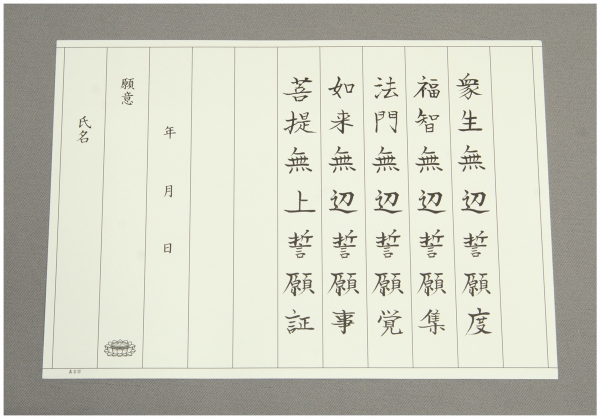 衆生無辺誓願度
福智無辺誓願集
法門無辺誓願覚
如来無辺誓願事
菩提無上誓願証
年 月 日
願意
氏名